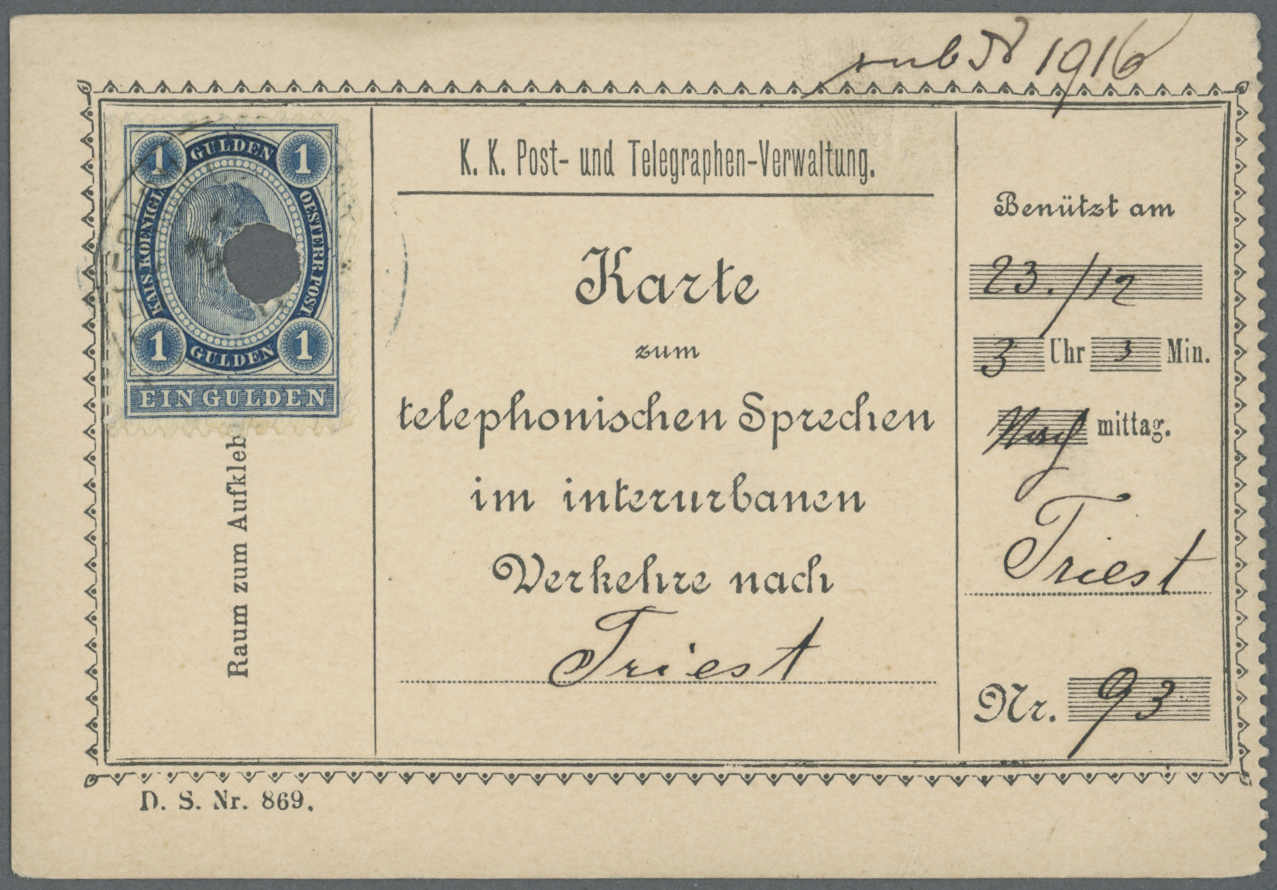 sub N 1916
1 GULDEN 1
KAIS. KOENIGL. OESTERR. POST
1 GULDEN 1
EIN GULDEN
Raum zum Aufkleb
D. S. Nr. 869.
K. K. Post- und Telegraphen-Verwaltung.
Karte
zum
telephonischen Sprechen
im interurbanen
Verkehre nach
Triest
Benützt am
23./12
3 Uhr 3 Min.
Nach mittag.
Triest
Nr. 93